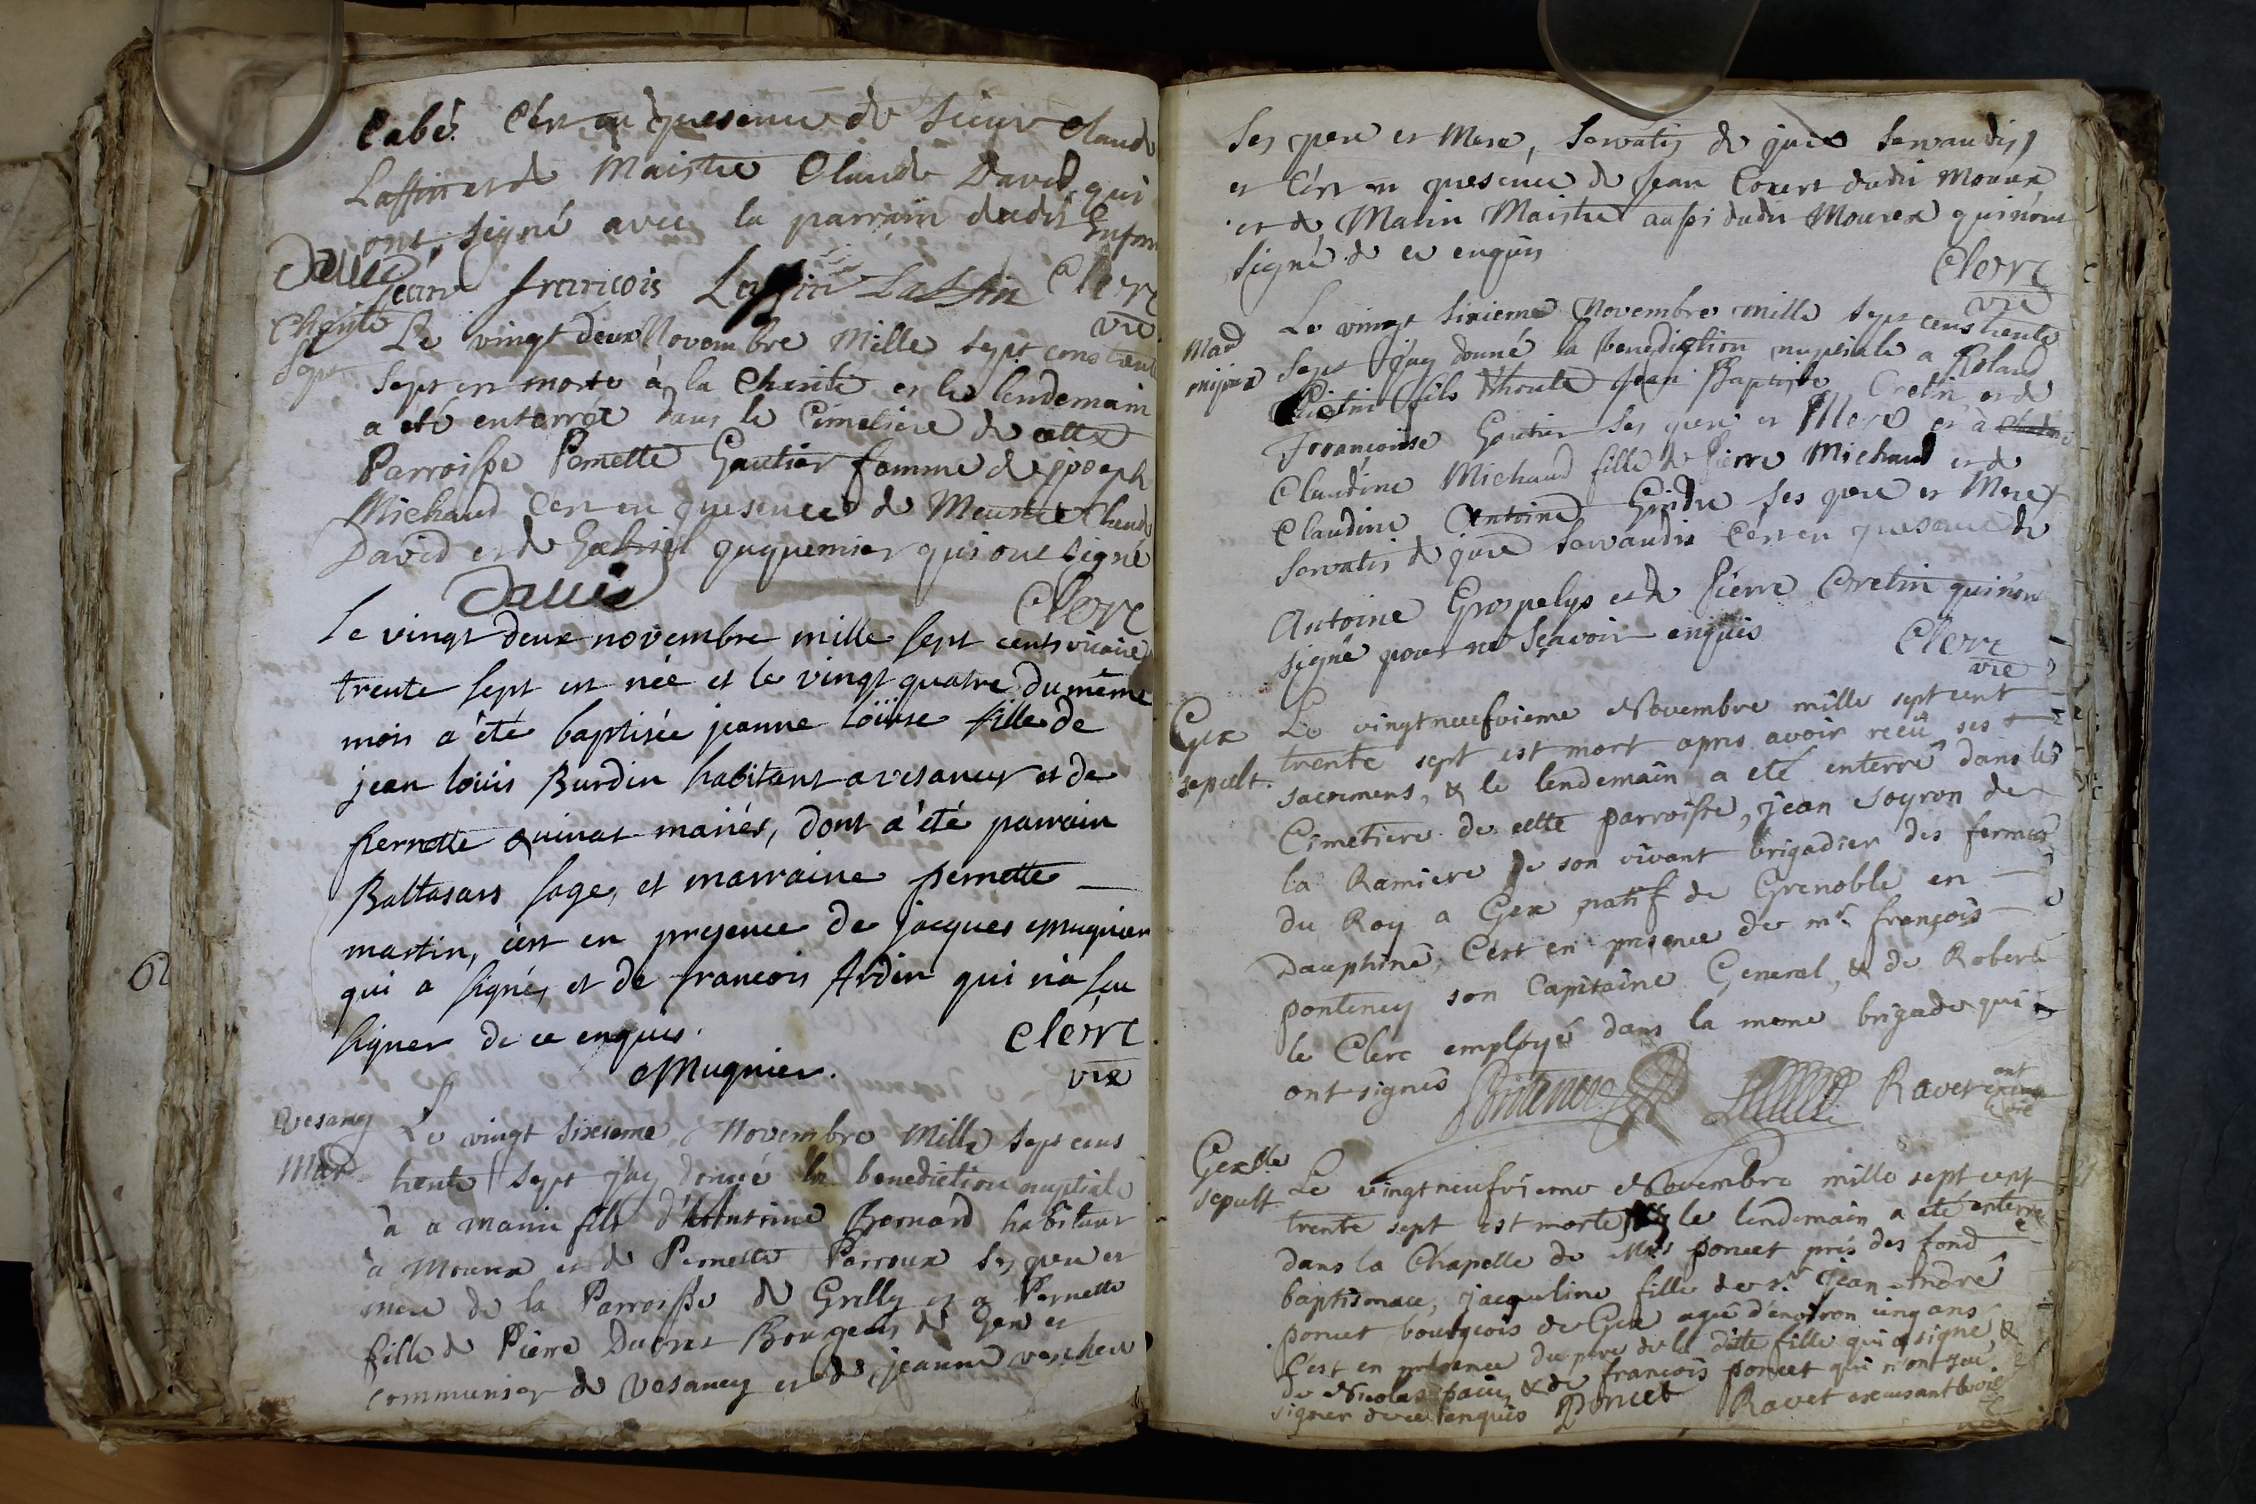 Cabé. C'est en presence de Sieur Claude
Laffin et de Maistre Claude David, qui
ont signé avec la parrain dudit Enfant
David
jean françois Laffin Laffin Clerc
vre
Charité
Sept
Le vingt deux Novembre Mille sept cens trente
sept est morte à la Charité et le lendemain
a été enterrée dans le Cimetiere de cette
Parroisse Pernette Gautier femme de joseph
Michaud C'est en presence de Meunier Claude
David et de Gabriel juquemier qui ont signé
David
Clerc
vicaire
Le vingt deux novembre mille sept cents
trente sept est née et le vingt quatre du même
mois a été baptisée jeanne Loüise fille de
jean loüis Burdin habitant a vesancy et de
pernette quinat mariés, dont a été parrain
Baltasars sage, et marraine pernette
martin, c'est en presence de jacques Mugnier
qui a signé, et de francois Ardin qui n'a seu
signer de ce enquis.
Clerc
vre
Mugnier.
Vesancy
Mar
Le vingt sixieme Novembre Mille sept cens
trente sept j'ay donné la benediction nuptiale
à a mamin fils d'Antoine Bernard habitant
à Mourex et de Pernette Perroux ses pere et
mere de la Parroisse de Grilly et a Pernette
fille de Pierre Ducret Bourgeois de Gex et
communier de Vesancy et de jeanne vescher
Ses pere et Mere, servatis de jure servandis,
et C'est en presence de Jean Covert dudit Mourex
et de Matin Maistre aussi dudit Mourex qui n'ont
signé de ce enquis
Clerc
vre
Mard
mijoux
Le vingt sixieme Novembre mille sept cens trente
sept j'ay donné la benediction nuptiale a Roland
Cretin fils d'honte Jean Baptiste Cretin et de
Françoise Gautier ses pere et Mere et à
Claudine Michaud fille de Pierre Michaud et de
Claudine Antoine Grindre ses pere et Mere
servatis de jure servandis C'est en presence de
Antoine Grospelys et de Pierre Cretin qui n'ont
signé pour ne sçavoir enquis
Clerc
vre
Gex
sepult.
Le vingtneufvieme Novembre mille sept cent
trente sept est mort apres avoir reçû ses
sacremens, & le lendemain a eté enterré dans les
Cimetiere de cette parroisse, jean soyron de
la Ramiere de son vivant brigadier des fermes
du Roy a Gex natif de Grenoble en
Dauphiné, C'est en presence de mr. françois
ponteney son Capitaine General, & de Robert
le Clerc employé dans la meme brigade qui
ont signés
Ravet
vre
Gex
sepult
Le vingtneufvieme Novembre mille sept cent
trente sept est morte, & le lendemain a eté enterrée
dans la Chapelle de Mrs poncet prés des fond
baptismaux, jacqueline fille de sr. jean André
poncet bourgeois de Gex agée d'environ cinq ans
C'est en presence du pere de la ditte fille qui a signé &
de Nicolas paier, & de françois poncet qui n'ont seu
signer de ce enquis Poncet Ravet